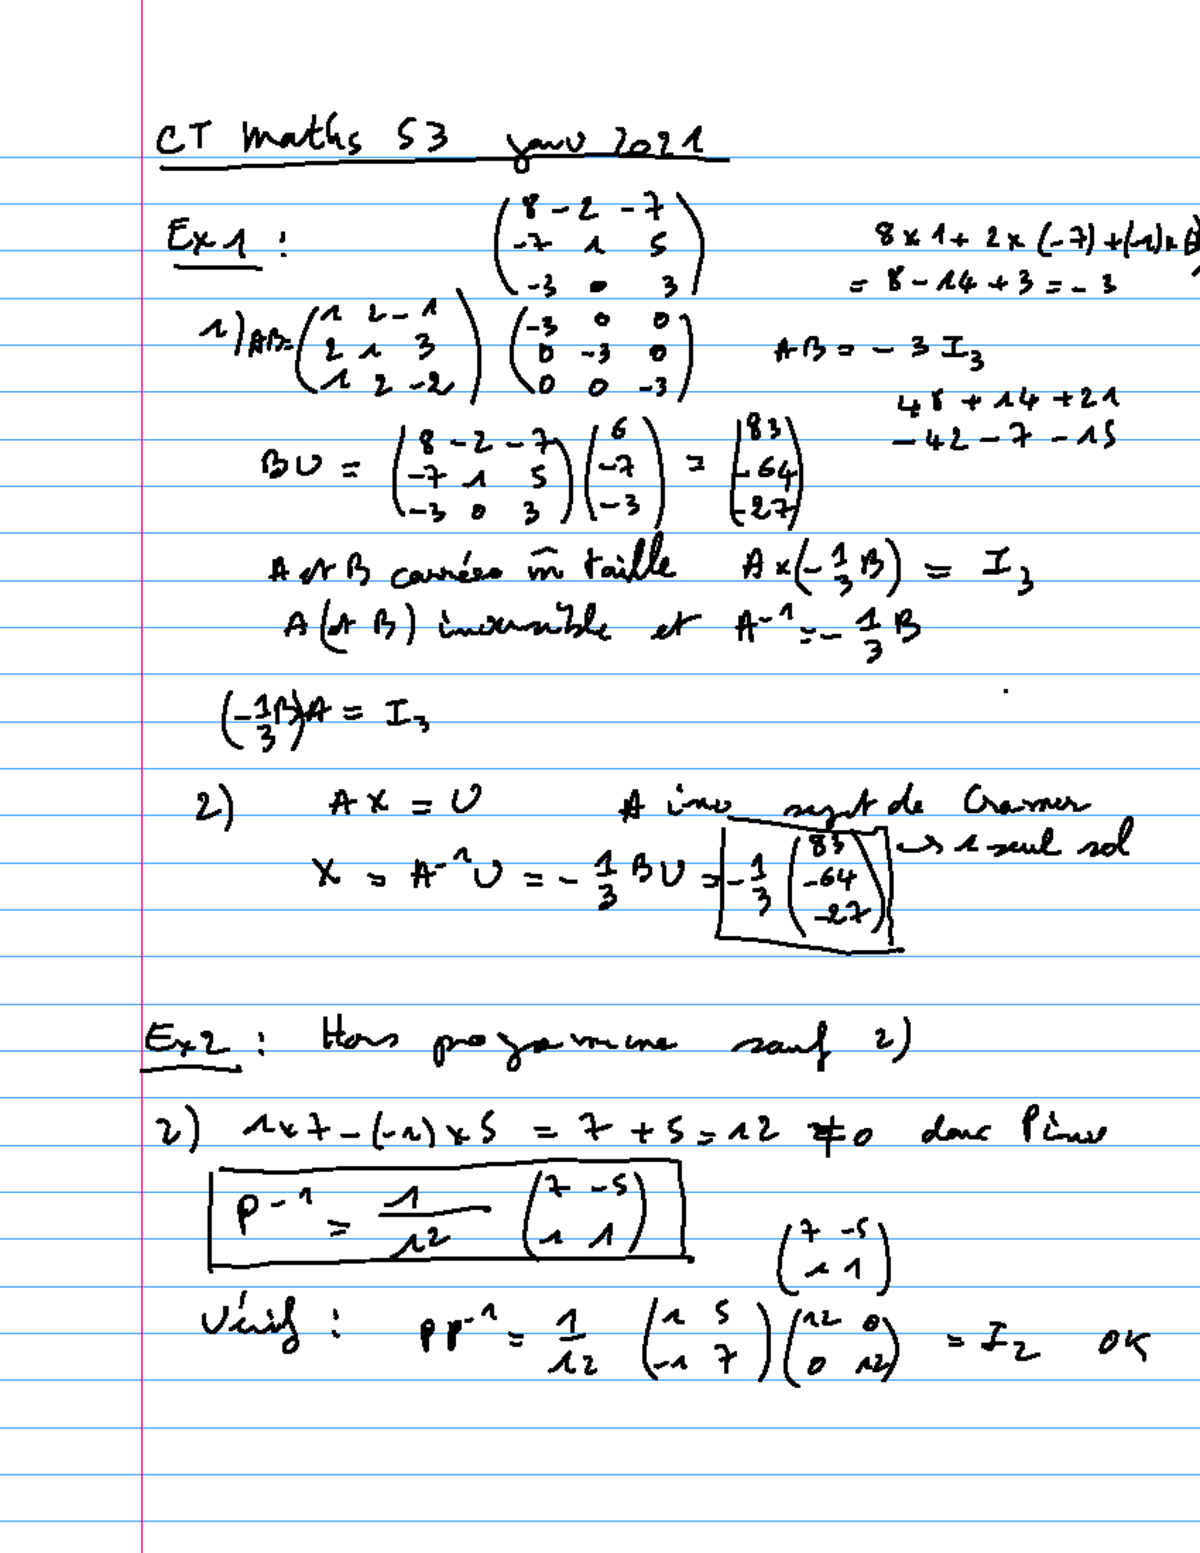 CT maths S3 janv 2021
Ex1 :
( 8 -2 -7 )
( -7 1 5 )
( -3 0 3 )
8 x 1 + 2 x (-7) + (-1) x
= 8 - 14 + 3 = - 3
1) AB = ( 1 2 -1 ) ( -3 0 0 )
( 2 1 3 ) ( 0 -3 0 )
( 1 2 -2 ) ( 0 0 -3 )
AB = - 3 I3
48 + 14 + 21
- 42 - 7 - 15
BU = ( 8 -2 -7 ) ( 6 ) = ( 83 )
( -7 1 5 ) ( -7 ) ( -64 )
( -3 0 3 ) ( -3 ) ( -27 )
A et B carrées m̂ taille A x (- 1/3 B) = I3
A (et B) inversible et A^-1 = - 1/3 B
(- 1/3 B) A = I3
2) AX = U A inv syst de Cramer
→ 1 seul sol
X = A^-1 U = - 1/3 BU = - 1/3 ( 83 )
( -64 )
( -27 )
Ex2 : Hors programme sauf 2)
2) 1 x 7 - (-1) x 5 = 7 + 5 = 12 ≠ 0 donc P inv
P^-1 = 1/12 ( 7 -5 )
( 1 1 )
( 7 -5 )
( 1 1 )
Vérif : PP^-1 = 1/12 ( 1 5 ) ( 12 0 ) = I2 OK
( -1 7 ) ( 0 12 )